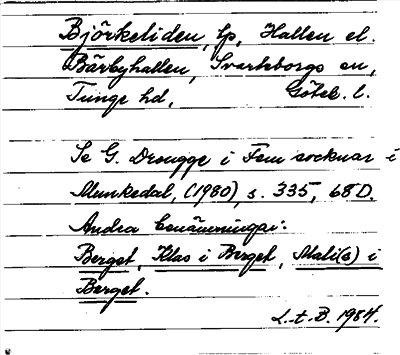 Björkeliden, lp, Hallen el.
Bärbyhallen, Svarteborgs sn,
Tunge hd, Göteb. l.
Se G. Drougge i Fem socknar i
Munkedal, (1980), s. 335, 68D.
Andra benämningar:
Berget, Klas i Berget, Mali(s) i
Berget.
L.t.B. 1984.